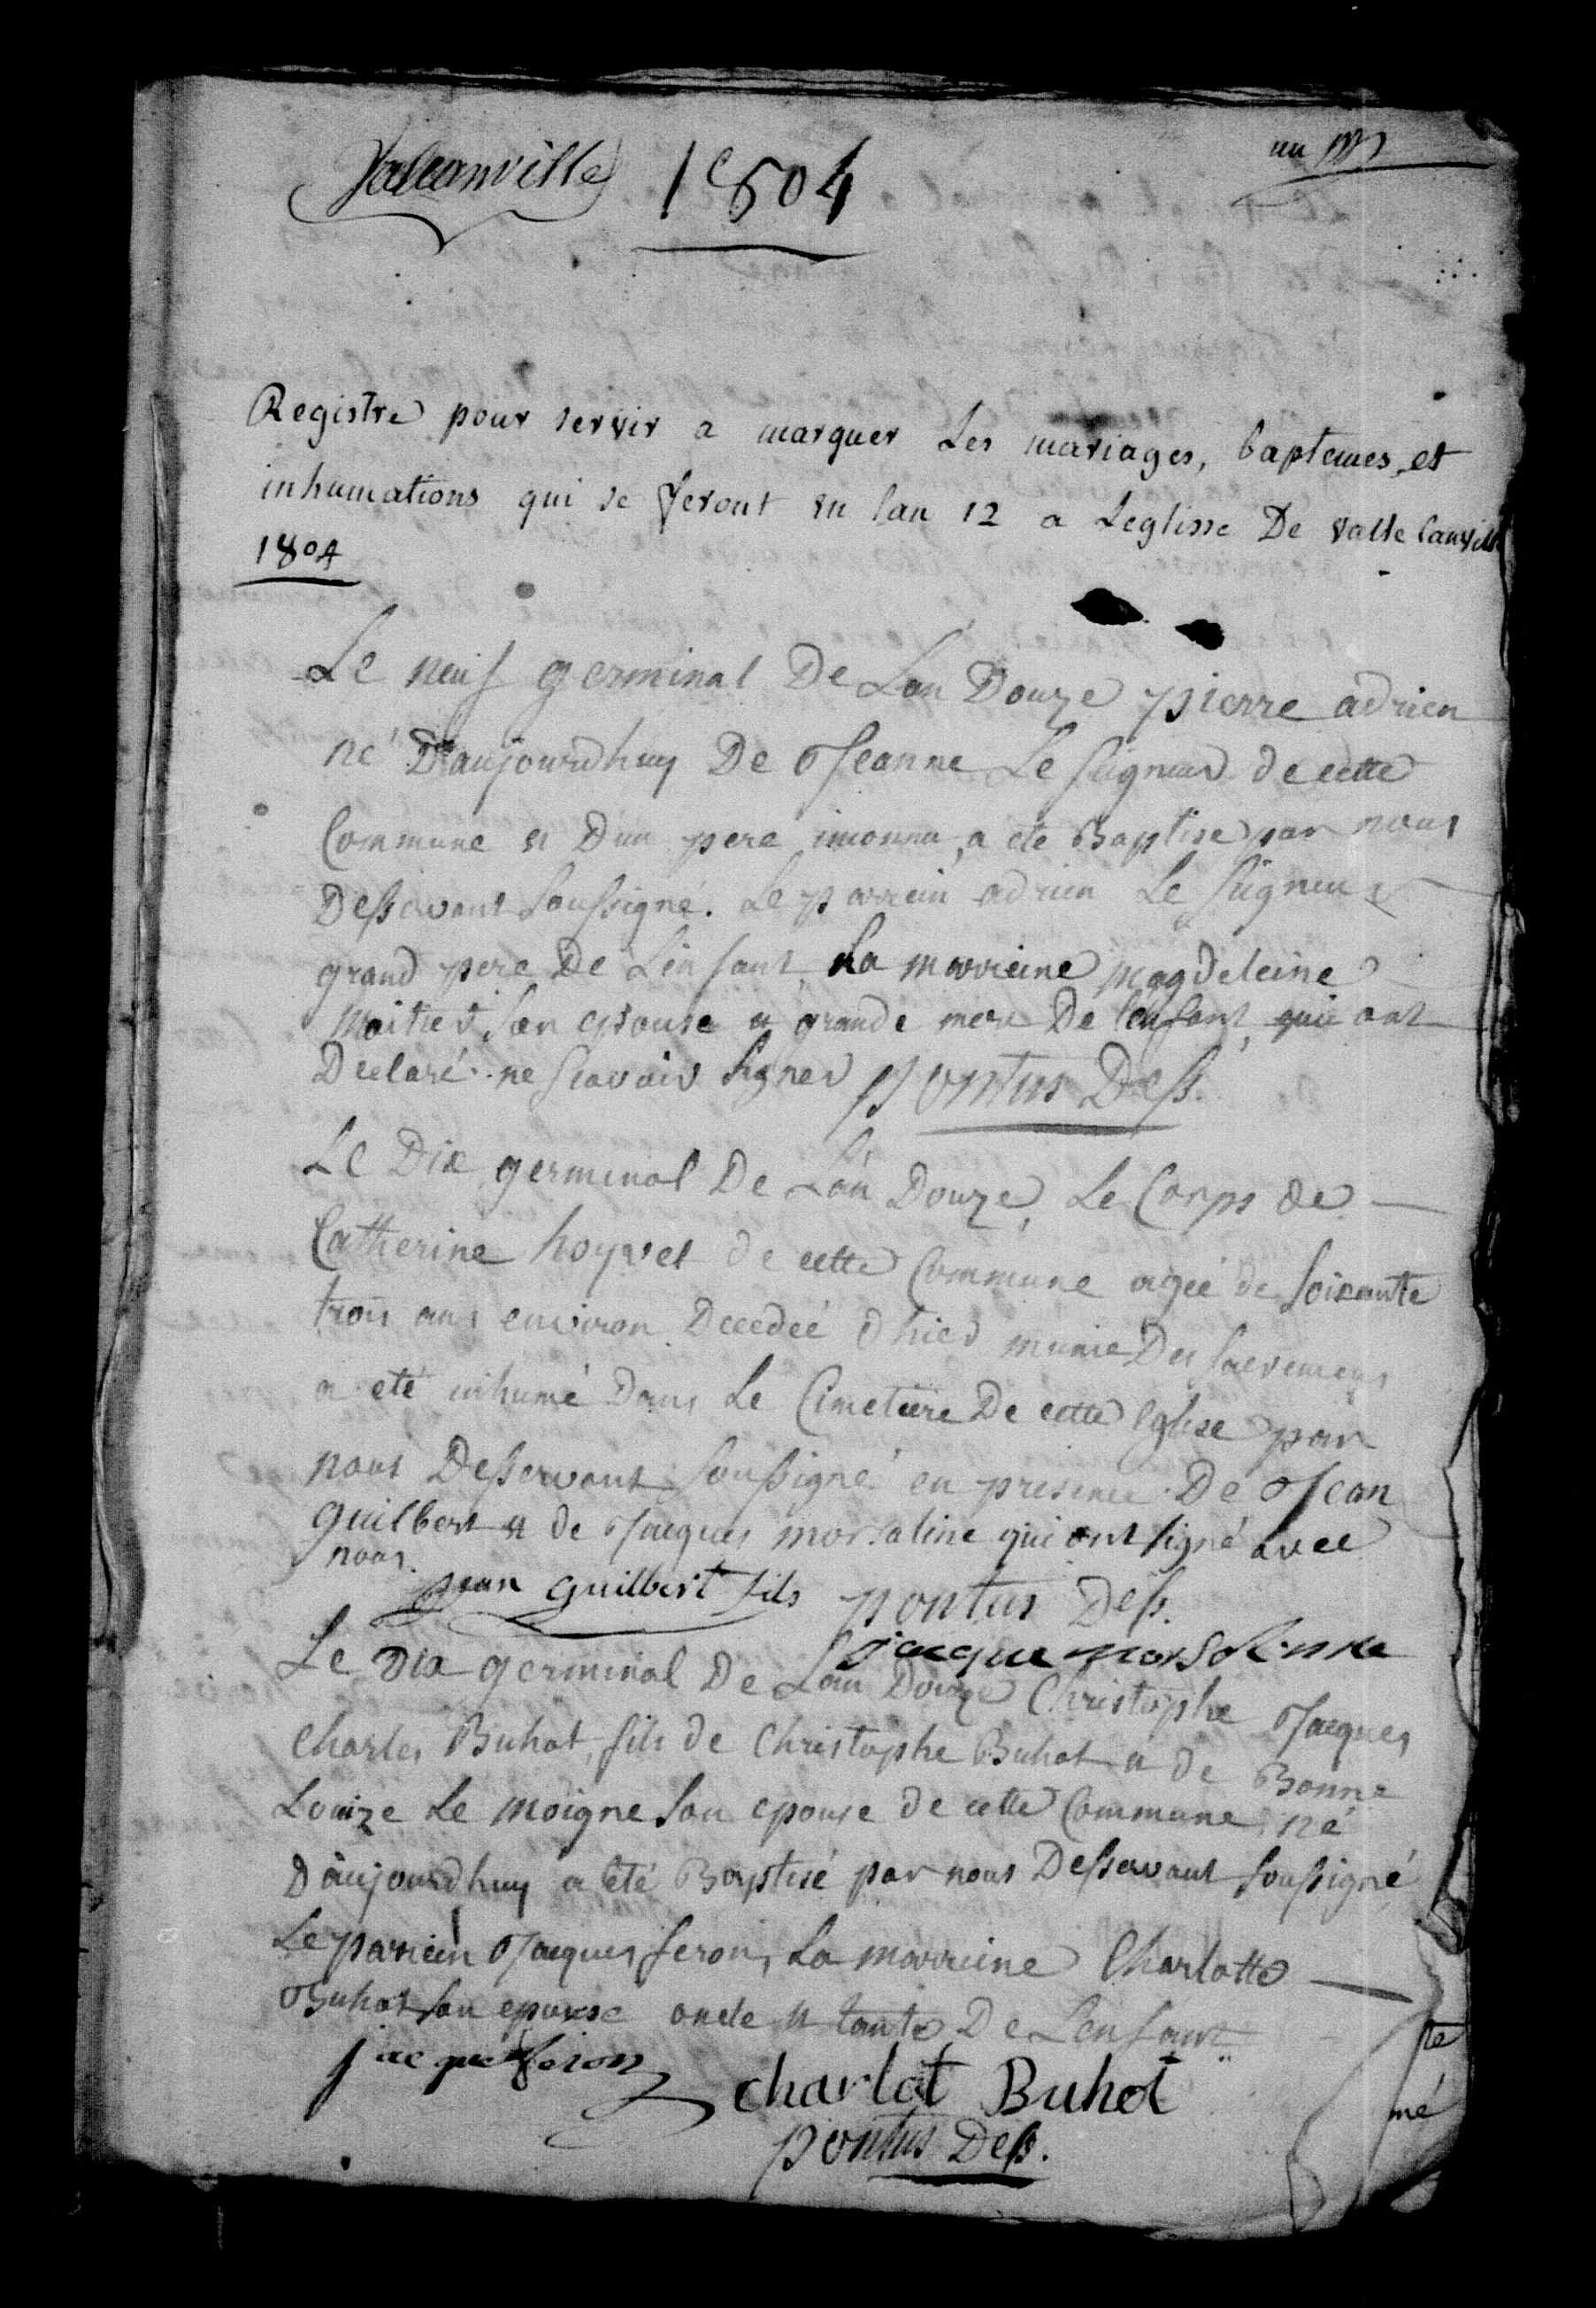 Valcanville 1804
Registre pour servir a marquer Les mariages, baptemes, et
inhumations qui se feront en lan 12 a Leglisse De valle canville
1804
Le neuf germinal De Lan Douze pierre adrien
né D'aujourdhuy De Jeanne Le Seigneur de cette
Commune et D'un pere inconnu, a eté Baptisé par nous
Desservant soussigné. Le parrein adrien Le Seigneur
grand pere De L'enfant, La marreine magdeleine
Maitret son epouse et grande mere De l'enfant, qui ont
Declaré ne scavoir signer pontus Dess.
Le Dix germinal De L'an Douze, Le Corps de
Catherine hoyvet de cette Commune agée de soixante
trois ans environ Decedeé d'hier munie Des sacremens
a eté inhumé Dans Le Cimetiere De cette eglise par
nous Desservant soussigné en presence De Jean
Guilbert et de Jacques morsaline qui ont signé avec
nous.
jean guilbert fils pontus Dess.
jacque morsalinne
Le Dix germinal De L'an Douze Christophe Jacques
Charles Buhot, fils de Christophe Buhot et de Bonne
Louize Le moigne son epouse de cette Commune, né
D'aujourdhuy a eté Baptisé par nous Desservant soussigné
Le parrein Jacques feron, La marreine Charlotte
Buhot son epouse oncle et tante De L'enfant
jacque feron
charlot Buhot
pontus Dess.
te
mé